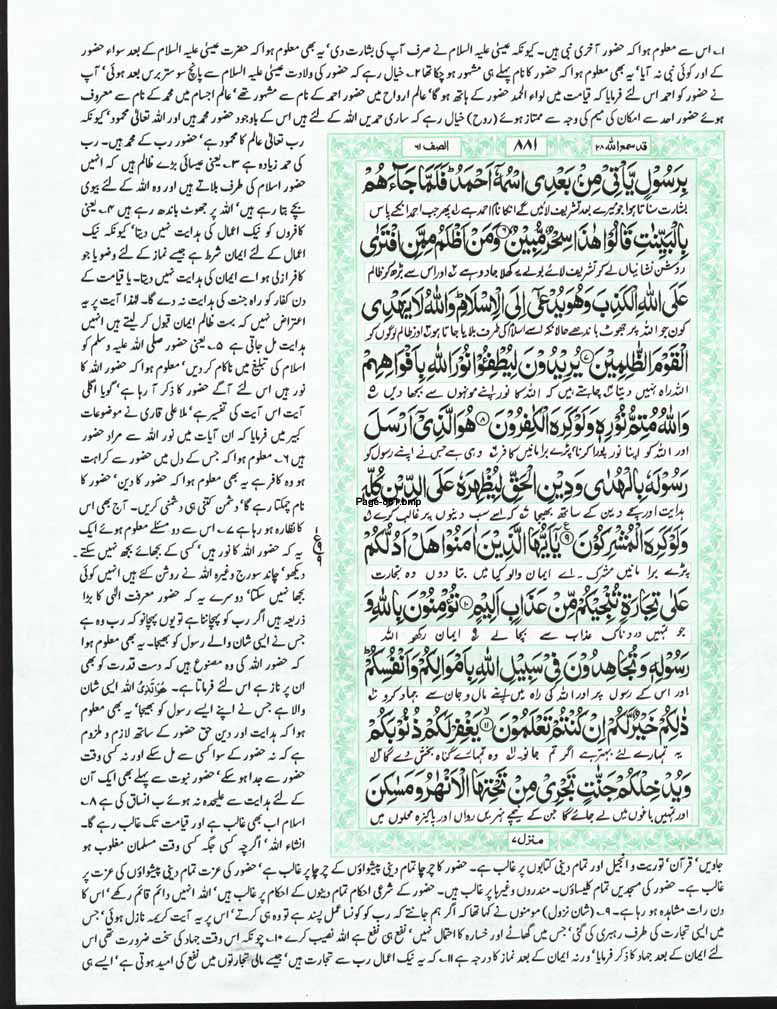 ۱۔ اس سے معلوم ہوا کہ حضور آخری نبی ہیں۔ کیونکہ عیسیٰ علیہ السلام نے صرف آپ کی بشارت دی‘ یہ بھی معلوم ہوا کہ حضرت عیسیٰ علیہ السلام کے بعد سواء حضور
کے اور کوئی نبی نہ آیا‘ یہ بھی معلوم ہوا کہ حضور کا نام پہلے ہی مشہور ہو چکا تھا ۲۔ خیال رہے کہ حضور کی ولادت عیسیٰ علیہ السلام سے پانچ سو ستر برس بعد ہوئی‘ آپ
نے حضور کو احمد اس لئے فرمایا کہ قیامت میں لواء الحمد حضور کے ہاتھ ہو گا‘ عالم ارواح میں حضور احمد کے نام سے مشہور تھے‘ عالم اجسام میں محمد کے نام سے معروف
ہوئے حضور احد سے امکان کی میم کی وجہ سے ممتاز ہوئے (روح) خیال رہے کہ ساری حمدیں اللہ کے لئے ہیں اس کے باوجود حضور محمد ہیں اور اللہ تعالیٰ محمود‘ کیونکہ
قد سمع اللہ ۲۸
۸۸۱
الصف ۶۱
بِرَسُوۡلٍ یَّاۡتِیۡ مِنۡۢ بَعۡدِی اسۡمُہٗۤ اَحۡمَدُ ؕ فَلَمَّا جَآءَہُمۡ
بشارت سناتا ہوا جو میرے بعد تشریف لائیں گے انکا نام احمد ہے پھر جب احمد انکے پاس
بِالۡبَیِّنٰتِ قَالُوۡا ہٰذَا سِحۡرٌ مُّبِیۡنٌ ﴿۶﴾ وَ مَنۡ اَظۡلَمُ مِمَّنِ افۡتَرٰی
روشن نشانیاں لے کر تشریف لائے بولے یہ کھلا جادو ہے اور اس سے بڑھ کر ظالم
عَلَی اللّٰہِ الۡکَذِبَ وَ ہُوَ یُدۡعٰۤی اِلَی الۡاِسۡلَامِ ؕ وَ اللّٰہُ لَا یَہۡدِی
کون جو اللہ پر جھوٹ باندھے حالانکہ اسے اسلام کی طرف بلایا جاتا ہو اور ظالم لوگوں کو
الۡقَوۡمَ الظّٰلِمِیۡنَ ﴿۷﴾ یُرِیۡدُوۡنَ لِیُطۡفِـُٔوۡا نُوۡرَ اللّٰہِ بِاَفۡوَاہِہِمۡ
اللہ راہ نہیں دیتا چاہتے ہیں کہ اللہ کا نور اپنے مونہوں سے بجھا دیں
وَ اللّٰہُ مُتِمُّ نُوۡرِہٖ وَ لَوۡ کَرِہَ الۡکٰفِرُوۡنَ ﴿۸﴾ ہُوَ الَّذِیۡۤ اَرۡسَلَ
اور اللہ کو اپنا نور پورا کرنا پڑے برا مانیں کافر وہی ہے جس نے اپنے رسول کو
رَسُوۡلَہٗ بِالۡہُدٰی وَ دِیۡنِ الۡحَقِّ لِیُظۡہِرَہٗ عَلَی الدِّیۡنِ کُلِّہٖ
ہدایت اور سچے دین کے ساتھ بھیجا کہ اسے سب دینوں پر غالب کرے
وَ لَوۡ کَرِہَ الۡمُشۡرِکُوۡنَ ﴿۹﴾ یٰۤاَیُّہَا الَّذِیۡنَ اٰمَنُوۡا ہَلۡ اَدُلُّکُمۡ
پڑے برا مانیں مشرک۔ اے ایمان والو کیا میں بتا دوں وہ تجارت
عَلٰی تِجَارَۃٍ تُنۡجِیۡکُمۡ مِّنۡ عَذَابٍ اَلِیۡمٍ ﴿۱۰﴾ تُؤۡمِنُوۡنَ بِاللّٰہِ وَ
جو تمہیں دردناک عذاب سے بچا لے ایمان رکھو اللہ
رَسُوۡلِہٖ وَ تُجَاہِدُوۡنَ فِیۡ سَبِیۡلِ اللّٰہِ بِاَمۡوَالِکُمۡ وَ اَنۡفُسِکُمۡ ؕ
اور اس کے رسول پر اور اللہ کی راہ میں اپنے مال و جان سے جہاد کرو
ذٰلِکُمۡ خَیۡرٌ لَّکُمۡ اِنۡ کُنۡتُمۡ تَعۡلَمُوۡنَ ﴿۱۱﴾ یَغۡفِرۡ لَکُمۡ ذُنُوۡبَکُمۡ
یہ تمہارے لئے بہتر ہے اگر تم جانو وہ تمہارے گناہ بخش دے گا
وَ یُدۡخِلۡکُمۡ جَنّٰتٍ تَجۡرِیۡ مِنۡ تَحۡتِہَا الۡاَنۡہٰرُ وَ مَسٰکِنَ
اور تمہیں باغوں میں لے جائے گا جن کے نیچے نہریں رواں اور پاکیزہ محلوں میں
منزل ۷
Page-881.bmp
رب تعالیٰ عالم کا محمود ہے‘ حضور رب کے محمد ہیں۔ رب
کی حمد زیادہ ہے ۳۔ یعنی عیسائی بڑے ظالم ہیں کہ انہیں
حضور اسلام کی طرف بلاتے ہیں اور وہ اللہ کے لئے بیوی
بچے بتا رہے ہیں‘ اللہ پر جھوٹ باندھ رہے ہیں ۴۔ یعنی
کافروں کو نیک اعمال کی ہدایت نہیں دیتا‘ کیونکہ نیک
اعمال کے لئے ایمان شرط ہے جیسے نماز کے لئے وضو یا جو
کافر ازلی ہو اسے ایمان کی ہدایت نہیں دیتا۔ یا قیامت کے
دن کفار کو راہ جنت کی ہدایت نہ دے گا۔ لہٰذا آیت پر یہ
اعتراض نہیں کہ بہت ظالم ایمان قبول کر لیتے ہیں انہیں
ہدایت مل جاتی ہے ۵۔ یعنی حضور صلی اللہ علیہ وسلم کو
اسلام کی تبلیغ میں ناکام کر دیں‘ معلوم ہوا کہ حضور اللہ کا
نور ہیں اس لئے آگے حضور کا ذکر آ رہا ہے‘ گویا اگلی
آیت اس آیت کی تفسیر ہے‘ ملا علی قاری نے موضوعات
کبیر میں فرمایا کہ ان آیات میں نور اللہ سے مراد حضور
ہیں ۶۔ معلوم ہوا کہ جس کے دل میں حضور سے کراہت
ہو وہ کافر ہے یہ بھی معلوم ہوا کہ حضور کا دین‘ حضور کا
نام چمکتا رہے گا‘ دشمن کتنی ہی دشمنی کریں۔ آج بھی اس
کا نظارہ ہو رہا ہے ۷۔ اس سے دو مسئلے معلوم ہوئے ایک
یہ کہ حضور اللہ کا نور ہیں‘ کسی کے بجھائے بجھ نہیں سکتے
دیکھو‘ چاند سورج وغیرہ اللہ نے روشن کئے ہیں انہیں کوئی
بجھا نہیں سکتا‘ دوسرے یہ کہ حضور معرفت الٰہی کا بڑا
ذریعہ ہیں اگر رب کو پہچاننا ہے تو یوں پہچانو کہ رب وہ ہے
جس نے ایسی شان والے رسول کو بھیجا۔ یہ بھی معلوم ہوا
کہ حضور اللہ کی وہ مصنوع ہیں کہ دست قدرت کو بھی
ان پر ناز ہے اس لئے فرماتا ہے۔ ھُوَالَّذِیْ اللہ ایسی شان
والا ہے جس نے اپنے ایسے رسول کو بھیجا‘ یہ بھی معلوم
ہوا کہ ہدایت اور دین حق حضور کے ساتھ لازم و ملزوم
ہے کہ نہ حضور کے سوا کسی سے مل سکے اور نہ کسی وقت
حضور سے جدا ہو سکے‘ حضور نبوت سے پہلے بھی ایک آن
کے لئے ہدایت سے علیحدہ نہ ہوئے ۸۔
اسلام اب بھی غالب ہے اور قیامت تک غالب رہے گا۔
انشاء اللہ‘ اگرچہ کسی جگہ کسی وقت مسلمان مغلوب ہو
جاویں‘ قرآن‘ توریت و انجیل اور تمام دینی کتابوں پر غالب ہے۔ حضور کا چرچا تمام دینی پیشواؤں کے چرچا پر غالب ہے‘ حضور کی عزت تمام دینی پیشواؤں کی عزت پر
غالب ہے۔ حضور کی مسجدیں تمام کلیساؤں۔ مندروں وغیرہا پر غالب ہیں۔ حضور کے شرعی احکام تمام دینوں کے احکام پر غالب ہیں‘ اللہ انہیں دائم قائم رکھے‘ اس کا
دن رات مشاہدہ ہو رہا ہے۔ ۹۔ (شان نزول) مومنوں نے کہا تھا کہ اگر ہم جانتے کہ رب کو کونسا عمل پسند ہے تو وہ ہی کرتے‘ اس پر یہ آیت کریمہ نازل ہوئی‘ جس
میں ایسی تجارت کی طرف رہبری کی گئی‘ جس میں گھاٹے اور خسارہ کا احتمال نہیں‘ نفع ہی نفع ہے اللہ نصیب کرے ۱۰۔ چونکہ اس وقت جہاد کی سخت ضرورت تھی اس
لئے ایمان کے بعد جہاد کا ذکر فرمایا‘ ورنہ ایمان کے بعد نماز کا درجہ ہے ۱۱۔ کہ یہ نیک اعمال رب سے تجارت ہیں‘ جیسے مالی تجارتوں میں نفع کی امید ہوتی ہے‘ ایسے ہی